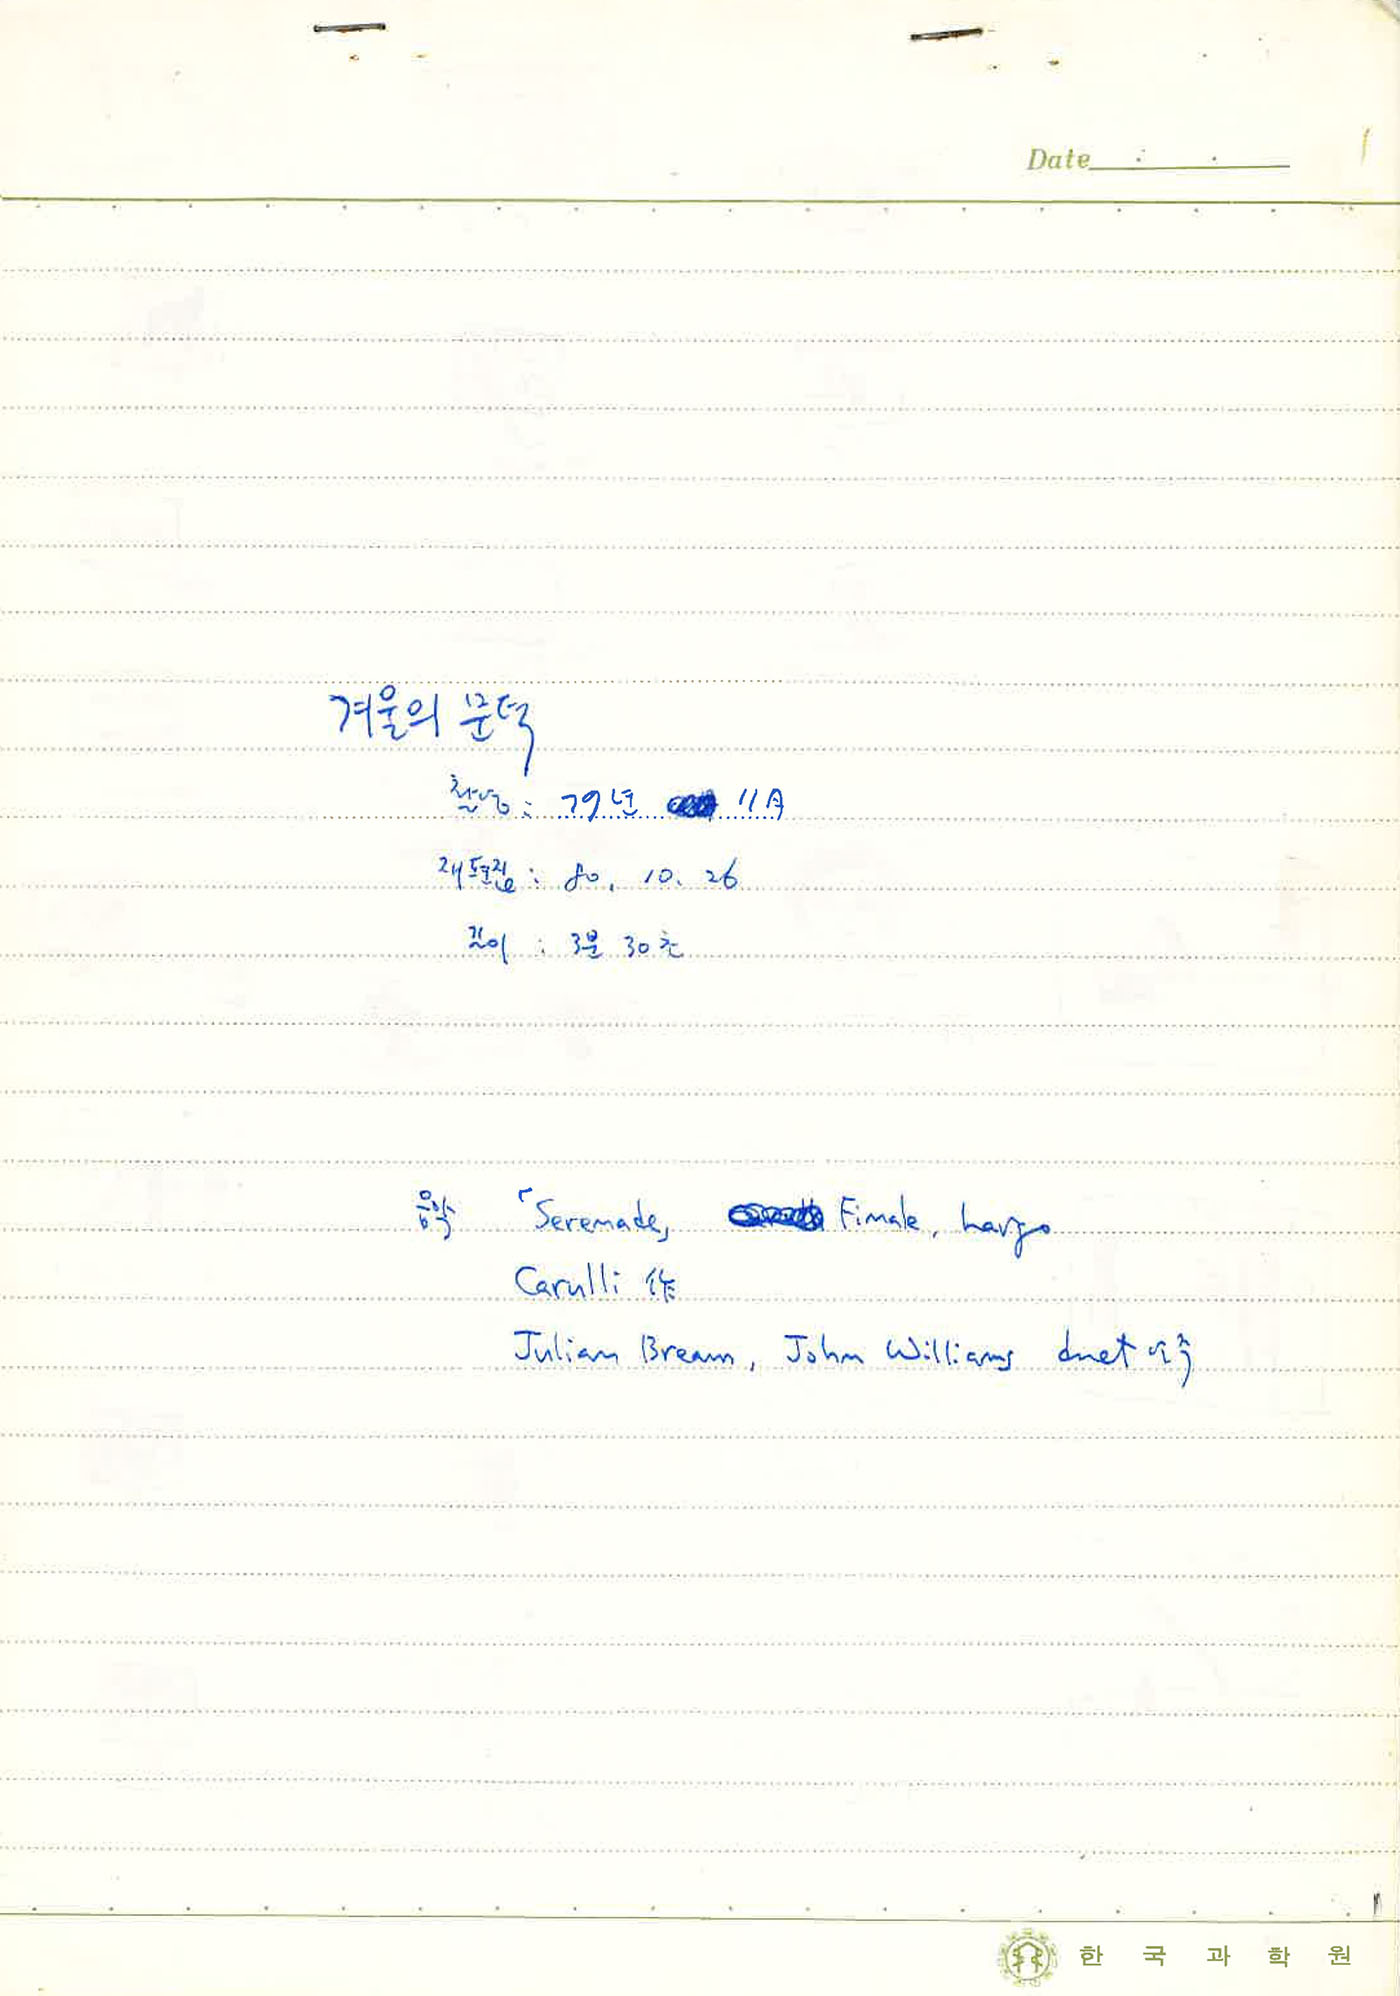 Date
겨울의 문턱
촬영 : 79년 11月
재편집 : 80. 10. 26
길이 : 3분 30초
음악 「Serenade, Finale, Largo
Carulli 作
Julian Bream, John Williams duet 연주
한국과학원